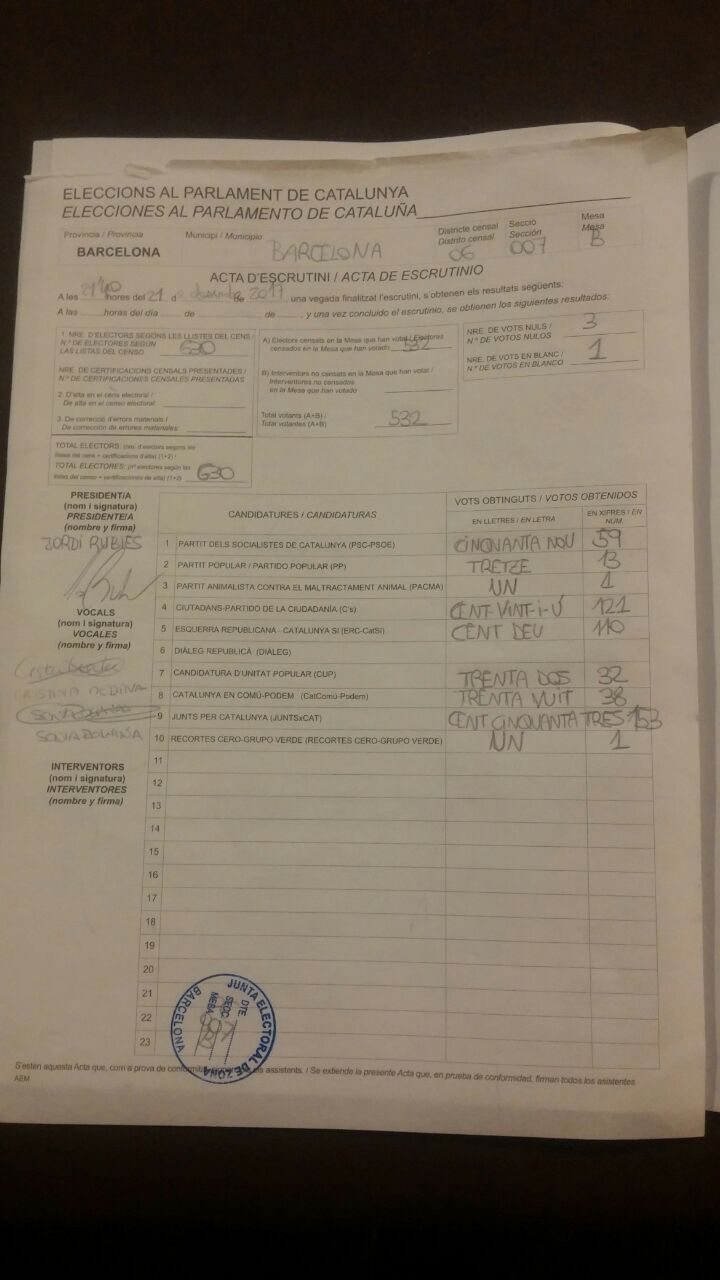 ELECCIONS AL PARLAMENT DE CATALUNYA
ELECCIONES AL PARLAMENTO DE CATALUÑA
Provincia / Provincia
BARCELONA
Municipi / Municipio
BARCELONA
Districte censal
Distrito censal
06
Secció
Sección
007
Mesa
Mesa
B
ACTA D'ESCRUTINI / ACTA DE ESCRUTINIO
A les hores del 21 de desembre de 2017, una vegada finalitzat l'escrutini, s'obtenen els resultats següents:
A las horas del día de de , y una vez concluido el escrutinio, se obtienen los siguientes resultados:
1. NRE. D'ELECTORS SEGONS LES LLISTES DEL CENS /
N.º DE ELECTORES SEGÚN
LAS LISTAS DEL CENSO
630
NRE. DE CERTIFICACIONS CENSALS PRESENTADES /
N.º DE CERTIFICACIONES CENSALES PRESENTADAS
2. D'alta en el cens electoral /
De alta en el censo electoral:
3. De correcció d'errors materials /
De corrección de errores materiales:
TOTAL ELECTORS: (nre. d'electors segons les
llistes del cens + certificacions d'alta) (1+2) /
TOTAL ELECTORES: (nº electores según las
listas del censo + certificaciones de alta) (1+2)
630
A) Electors censats en la Mesa que han votat / Electores
censados en la Mesa que han votado
532
B) Interventors no censats en la Mesa que han votat /
Interventores no censados
en la Mesa que han votado
Total votants (A+B) /
Total votantes (A+B)
532
NRE. DE VOTS NULS /
N.º DE VOTOS NULOS
3
NRE. DE VOTS EN BLANC /
N.º DE VOTOS EN BLANCO
1
PRESIDENT/A
(nom i signatura)
PRESIDENTE/A
(nombre y firma)
JORDI RUBIES
VOCALS
(nom i signatura)
VOCALES
(nombre y firma)
CRISTINA MEDINA
INTERVENTORS
(nom i signatura)
INTERVENTORES
(nombre y firma)
CANDIDATURES / CANDIDATURAS
VOTS OBTINGUTS / VOTOS OBTENIDOS
EN LLETRES / EN LETRA
EN XIFRES / EN NÚM.
1 PARTIT DELS SOCIALISTES DE CATALUNYA (PSC-PSOE) CINQUANTA NOU 59
2 PARTIT POPULAR / PARTIDO POPULAR (PP) TRETZE 13
3 PARTIT ANIMALISTA CONTRA EL MALTRACTAMENT ANIMAL (PACMA) UN 1
4 CIUTADANS-PARTIDO DE LA CIUDADANÍA (C's) CENT VINT-I-Ú 121
5 ESQUERRA REPUBLICANA - CATALUNYA SÍ (ERC-CatSí) CENT DEU 110
6 DIÀLEG REPUBLICÀ (DIÀLEG)
7 CANDIDATURA D'UNITAT POPULAR (CUP) TRENTA DOS 32
8 CATALUNYA EN COMÚ-PODEM (CatComú-Podem) TRENTA VUIT 38
9 JUNTS PER CATALUNYA (JUNTSxCAT) CENT CINQUANTA TRES 153
10 RECORTES CERO-GRUPO VERDE (RECORTES CERO-GRUPO VERDE) UN 1
11
12
13
14
15
16
17
18
19
20
21
22
23
JUNTA ELECTORAL DE ZONA
BARCELONA
DTE.
SECC.
MESA
S'estén aquesta Acta que, com a prova de els assistents. / Se extiende la presente Acta que, en prueba de conformidad, firman todos los asistentes.
AEM